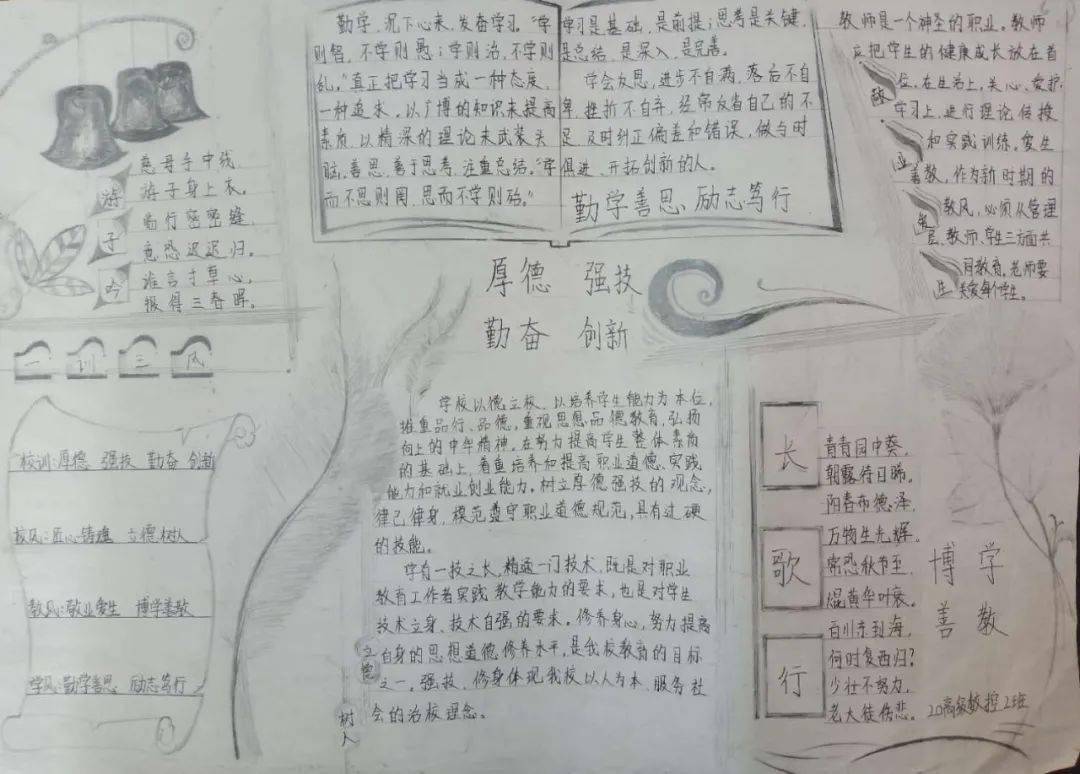 慈母手中线,
游子身上衣。
临行密密缝,
意恐迟迟归。
谁言寸草心,
报得三春晖。
游
子
吟
一 训 三 风
校训:厚德 强技 勤奋 创新
校风:匠心铸魂 立德树人
教风:敬业爱生 博学善教
学风:勤学善思 励志笃行
勤学,沉下心来,发奋学习。“学
则智,不学则愚;学则治,不学则
乱。”真正把学习当成一种态度,
一种追求。以广博的知识来提高
素质,以精深的理论来武装头
脑。善思,善于思考,注重总结。“学
而不思则罔,思而不学则殆。”
学习是基础,是前提;思考是关键,
是总结,是深入,是完善。
学会反思,进步不自满,落后不自
卑,挫折不自弃,经常反省自己的不
足,及时纠正偏差和错误,做与时
俱进、开拓创新的人。
勤学善思、励志笃行
厚德 强技
勤奋 创新
学校以德立校、以培养学生能力为本位,
推重品行、品德,重视思想品德教育,弘扬
向上的中华精神。在努力提高学生整体素质
的基础上,着重培养和提高职业道德、实践
能力和就业创业能力。树立厚德强技的观念,
律己律身,模范遵守职业道德规范,具有过硬
的技能。
学有一技之长,精通一门技术,既是对职业
教育工作者实践教学能力的要求,也是对学生
技术立身、技术自强的要求。修养身心,努力提高
自身的思想道德修养水平,是我校教育的目标
之一。强技、修身体现我校以人为本、服务社
会的治校理念。
立德
树人
教师是一个神圣的职业。教师
应把学生的健康成长放在首
位。在生活上,关心、爱护,
学习上,进行理论传授
和实践训练。爱生
善教,作为新时期的
教风,必须从管理
层、教师、学生三方面共
同教育。老师要
关爱每个学生。
敬
业
爱
生
长
歌
行
青青园中葵,
朝露待日晞。
阳春布德泽,
万物生光辉。
常恐秋节至,
焜黄华叶衰。
百川东到海,
何时复西归?
少壮不努力,
老大徒伤悲。
博学
善教
20高级数控2班